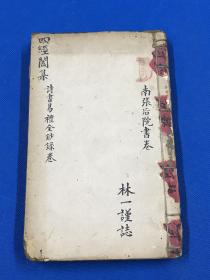 南張后院書卷
林一謹誌
四經闈集
詩書易禮全鈔錄卷